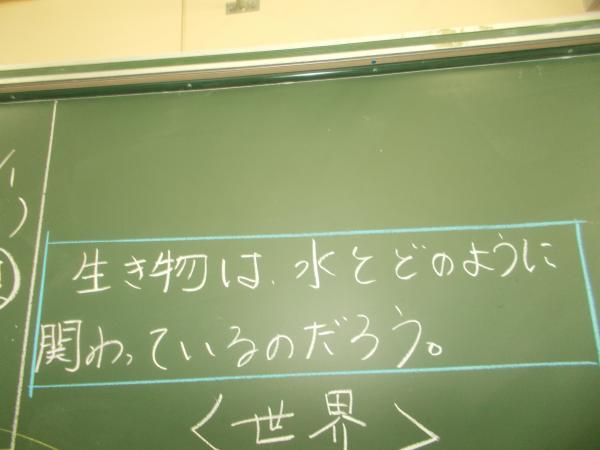 生き物は、水とどのように
関わっているのだろう。
〈世界〉